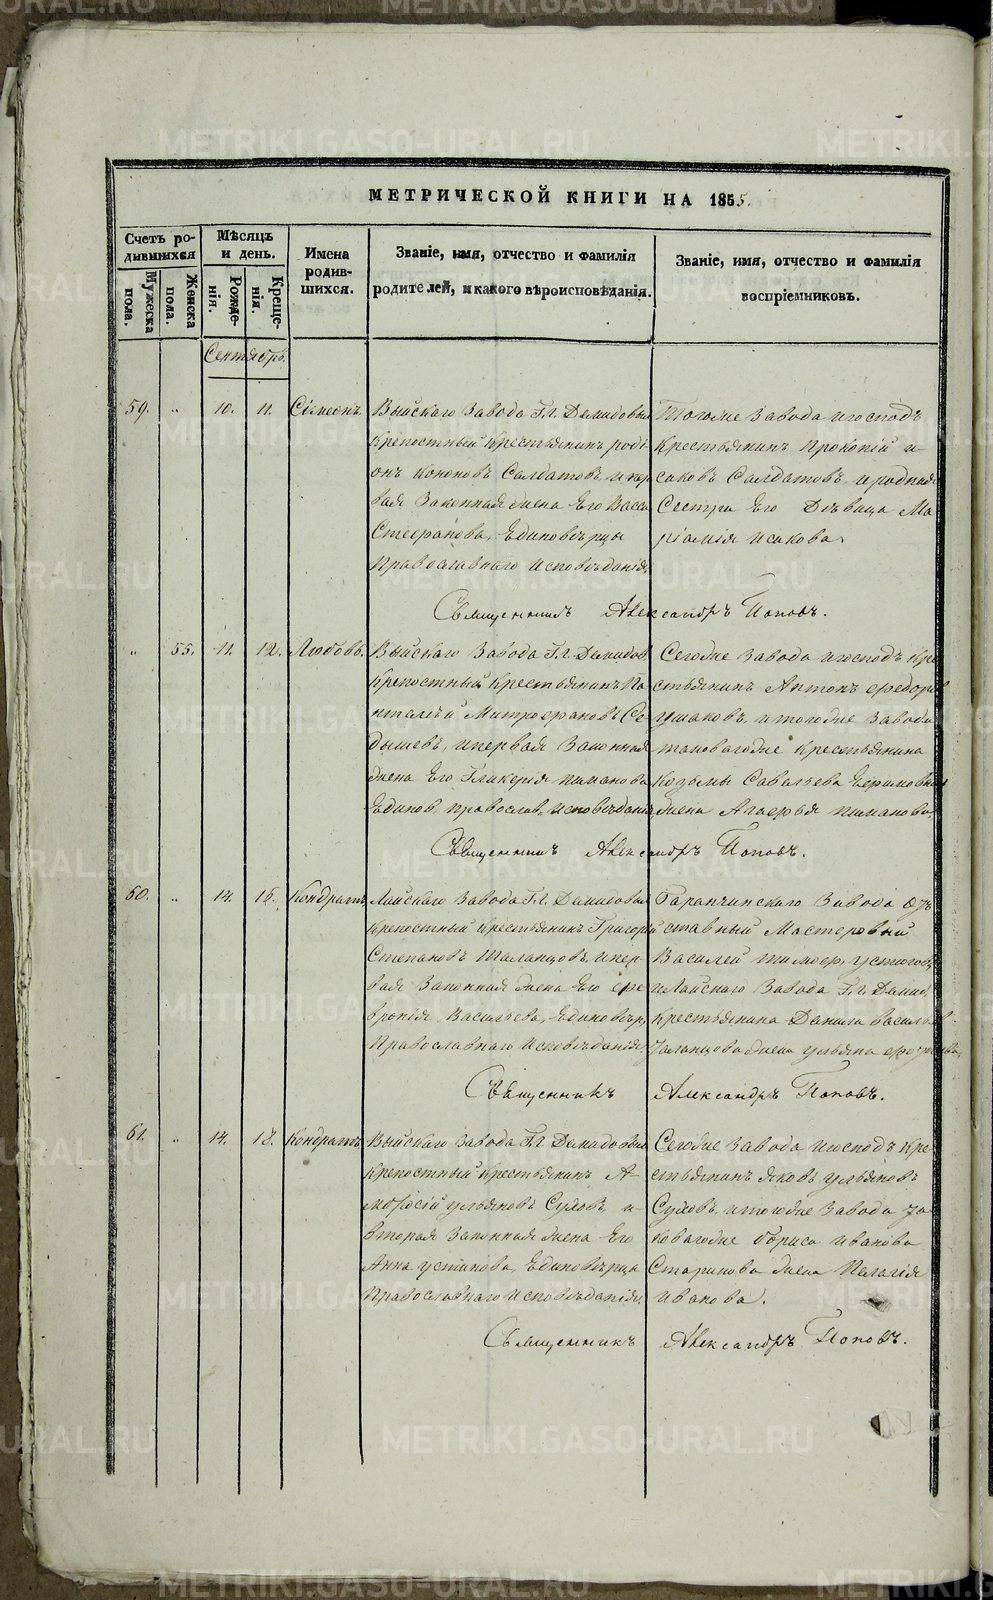 МЕТРИЧЕСКОЙ КНИГИ НА 1855.
Счетъ родившихся
Мужеска пола.
Женска пола.
Мѣсяцъ и день.
Рожденія.
Крещенія.
Имена родившихся.
Званіе, имя, отчество и фамилія родителей, и какого вѣроисповѣданія.
Званіе, имя, отчество и фамилія воспріемниковъ.
Сентябрь.
59. " 10. 11. Сімеонъ.
Выйскаго завода Г.г. Демидовыхъ
крепостный крестьянинъ роді-
онъ кононовъ Солдатовъ, и пер
вая законная жена Его Васса
Стефанова, Единовѣрцы
Православнаго исповѣданія,
Тогоже завода и господъ
крестьянинъ Прокопій и-
саковъ Солдатовъ, и родная
Сестра Его Дѣвица Ма
ріамія исакова.
Священникъ Александръ Поповъ.
" 55. 11. 12. Любовь.
Выйскаго завода Г.г. Демидов
крепостный крестьянинъ Па
нтелѣй Митрофановъ Се-
дышевъ, и первая законная
жена Его Гликерія пиманова
Единов. православ. исповѣданія,
Сегоже завода и господъ кре
стьянинъ Антонъ федоров
ушаковъ, и тогоже завода
таковагоже крестьянина
Козьмы Савельева Ефимовых
жена Агафья пиманова.
Священникъ Александръ Поповъ.
60. " 14. 16. Кондратъ
Лайскаго завода Г.г. Демидовыхъ
крепостный крестьянинъ Григорій
Степановъ Таланцовъ, и пер-
вая законная жена Его фе
вронія Васильева, Единовѣр,
Православнаго исповѣданія,
Баранчинскаго завода от
ставный Мастеровый
Василей тимоф. устюгов,
и Лайскаго завода Г.г. Демид,
крестьянина Данила васильев
Таланцова жена ульяна
Священникъ Александръ Поповъ.
61. " 14. 18. Кондратъ
Выйскаго завода Г.г. Демидовыхъ
крепостный крестьянинъ А-
мбросій ульяновъ Суховъ и-
вторая законная жена Его
Анна устинова, Единовѣрца
Православнаго исповѣданія,
Сегоже завода и господъ кре-
стьянинъ яковъ ульяновъ
Суховъ, и тогоже завода та
ковагоже бориса иванова
Старикова жена Пелагія
иванова.
Священникъ Александръ Поповъ.
METRIKI.GASO-URAL.RU